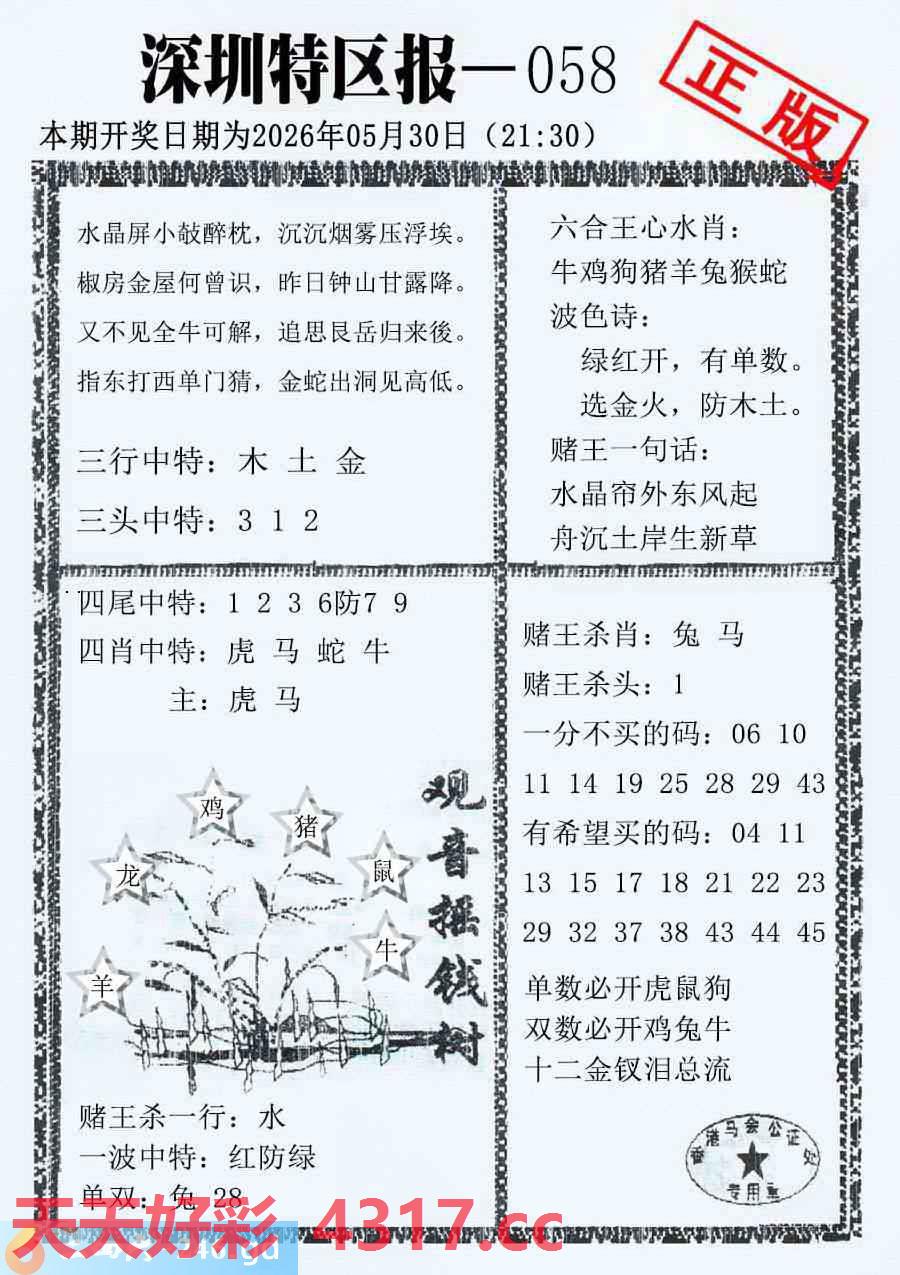 深圳特区报—058
正版
本期开奖日期为2026年05月30日（21:30）
水晶屏小敧醉枕，沉沉烟雾压浮埃。
椒房金屋何曾识，昨日钟山甘露降。
又不见全牛可解，追思艮岳归来後。
指东打西单门猜，金蛇出洞见高低。
三行中特：木 土 金
三头中特：3 1 2
六合王心水肖：
牛鸡狗猪羊兔猴蛇
波色诗：
绿红开，有单数。
选金火，防木土。
赌王一句话：
水晶帘外东风起
舟沉土岸生新草
四尾中特：1 2 3 6防7 9
四肖中特：虎 马 蛇 牛
主：虎 马
鸡
猪
龙
鼠
牛
羊
观音摇钱树
赌王杀一行：水
一波中特：红防绿
单双：兔 28
赌王杀肖：兔 马
赌王杀头：1
一分不买的码：06 10
11 14 19 25 28 29 43
有希望买的码：04 11
13 15 17 18 21 22 23
29 32 37 38 43 44 45
单数必开虎鼠狗
双数必开鸡兔牛
十二金钗泪总流
香港马会公证处
专用章
天天好彩 4317.cc